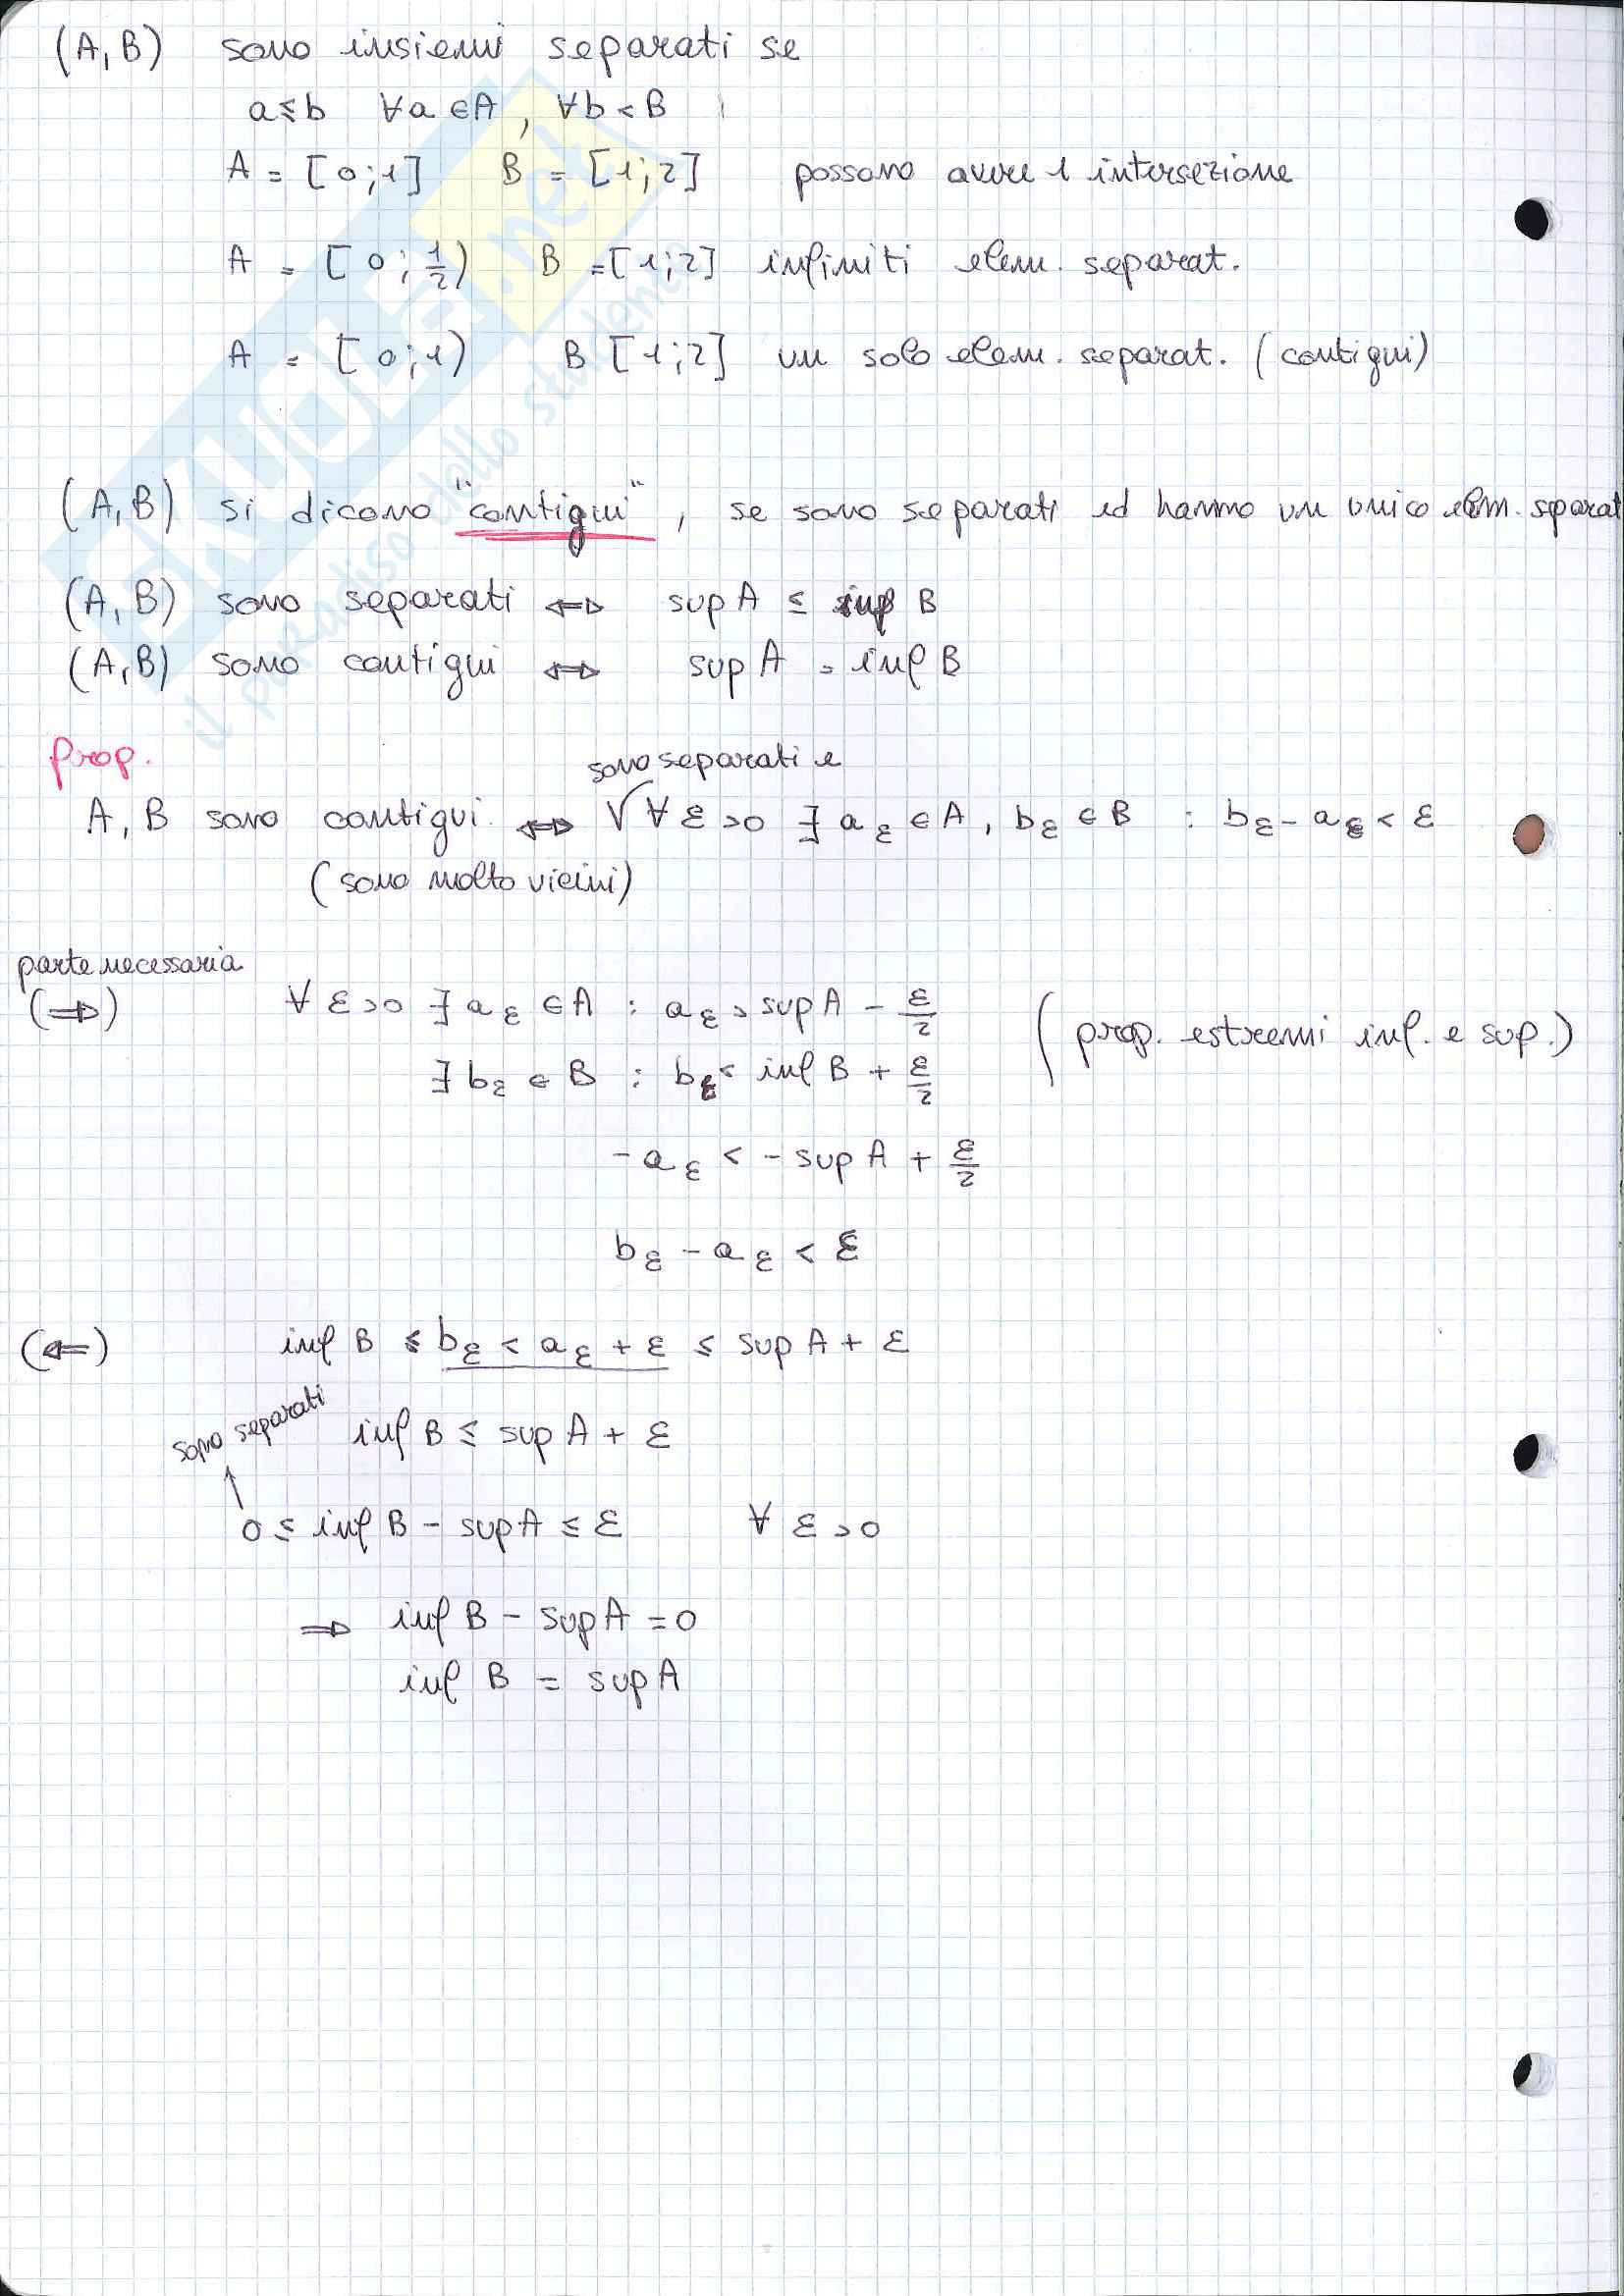 (A,B) sono insiemi separati se
a ≤ b ∀a ∈ A, ∀b < B
A = [0;1] B = [1;2] possono avere 1 intersezione
A = [0; 1/2) B = [1;2] infiniti elem. separat.
A = [0;1) B [1;2] un solo elem. separat. (contigui)
(A,B) si dicono "contigui", se sono separati ed hanno un unico elem. separat
(A,B) sono separati ⇔ sup A ≤ inf B
(A,B) sono contigui ⇔ sup A = inf B
Prop.
sono separati e
A, B sono contigui ⇔ √ ∀ ε > 0 ∃ a_ε ∈ A, b_ε ∈ B : b_ε - a_ε < ε
(sono molto vicini)
parte necessaria
(⇒) ∀ ε > 0 ∃ a_ε ∈ A : a_ε > sup A - ε/2 (prop. estremi inf. e sup.)
∃ b_ε ∈ B : b_ε < inf B + ε/2
-a_ε < -sup A + ε/2
b_ε - a_ε < ε
(⇐) inf B ≤ b_ε < a_ε + ε ≤ sup A + ε
sono separati
inf B ≤ sup A + ε
↑
0 ≤ inf B - sup A ≤ ε ∀ ε > 0
⇒ inf B - sup A = 0
inf B = sup A
SKUOLA.net
il paradiso dello studente